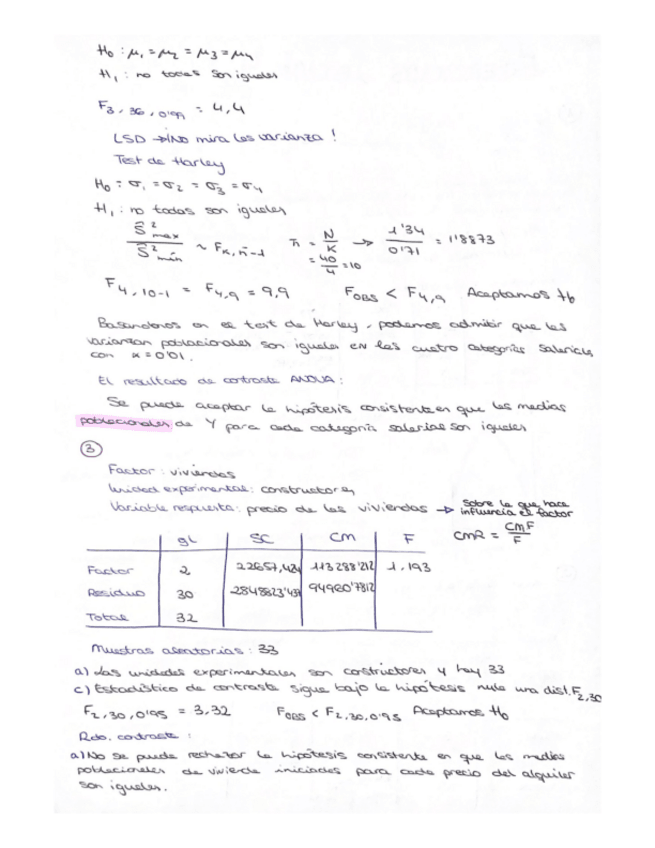 H₀ : μ₁ = μ₂ = μ₃ = μ₄
H₁ : no todas son iguales
F₃,₃₆,₀'₉₉ = 4,4
LSD → ¡NO mira las varianza!
Test de Harley
H₀ = σ₁ = σ₂ = σ₃ = σ₄
H₁ : no todas son iguales
Ŝ²max / Ŝ²mín ~ F K, n̄-1    n̄ = N/K = 40/4 = 10 → 1'34 / 0'71 = 1'8873
F₄,₁₀₋₁ = F₄,₉ = 9,9    FOBS < F₄,₉ Aceptamos H₀
Basandonos en el test de Harley, podemos admitir que las
varianzan poblacionales son iguales en las cuatro categorías salariales
con α = 0'01.
El resultado de contraste ANOVA :
Se puede aceptar la hipótesis consistente en que las medias
poblacionales de Y para cada categoría salarial son iguales
③
Factor : viviendas
Unidad experimental : constructora
Variable respuesta : precio de las viviendas → sobre la que hace influencia el factor
CMR = CMF / F
gl SC CM F
Factor 2 22657,424 113288'212 1.193
Residuo 30 2848823'437 94960'7812
Total 32
Muestras aleatorias : 33
a) Las unidades experimentales son constructores y hay 33
c) Estadístico de contraste sigue bajo la hipótesis nula una dist. F₂,₃₀
F₂,₃₀,₀'₉₅ = 3,32    FOBS < F₂,₃₀,₀'₉₅ Aceptamos H₀
Rdo. contraste :
a) No se puede rechazar la hipótesis consistente en que las medias
poblacionales de vivienda iniciadas para cada precio del alquiler
son iguales.